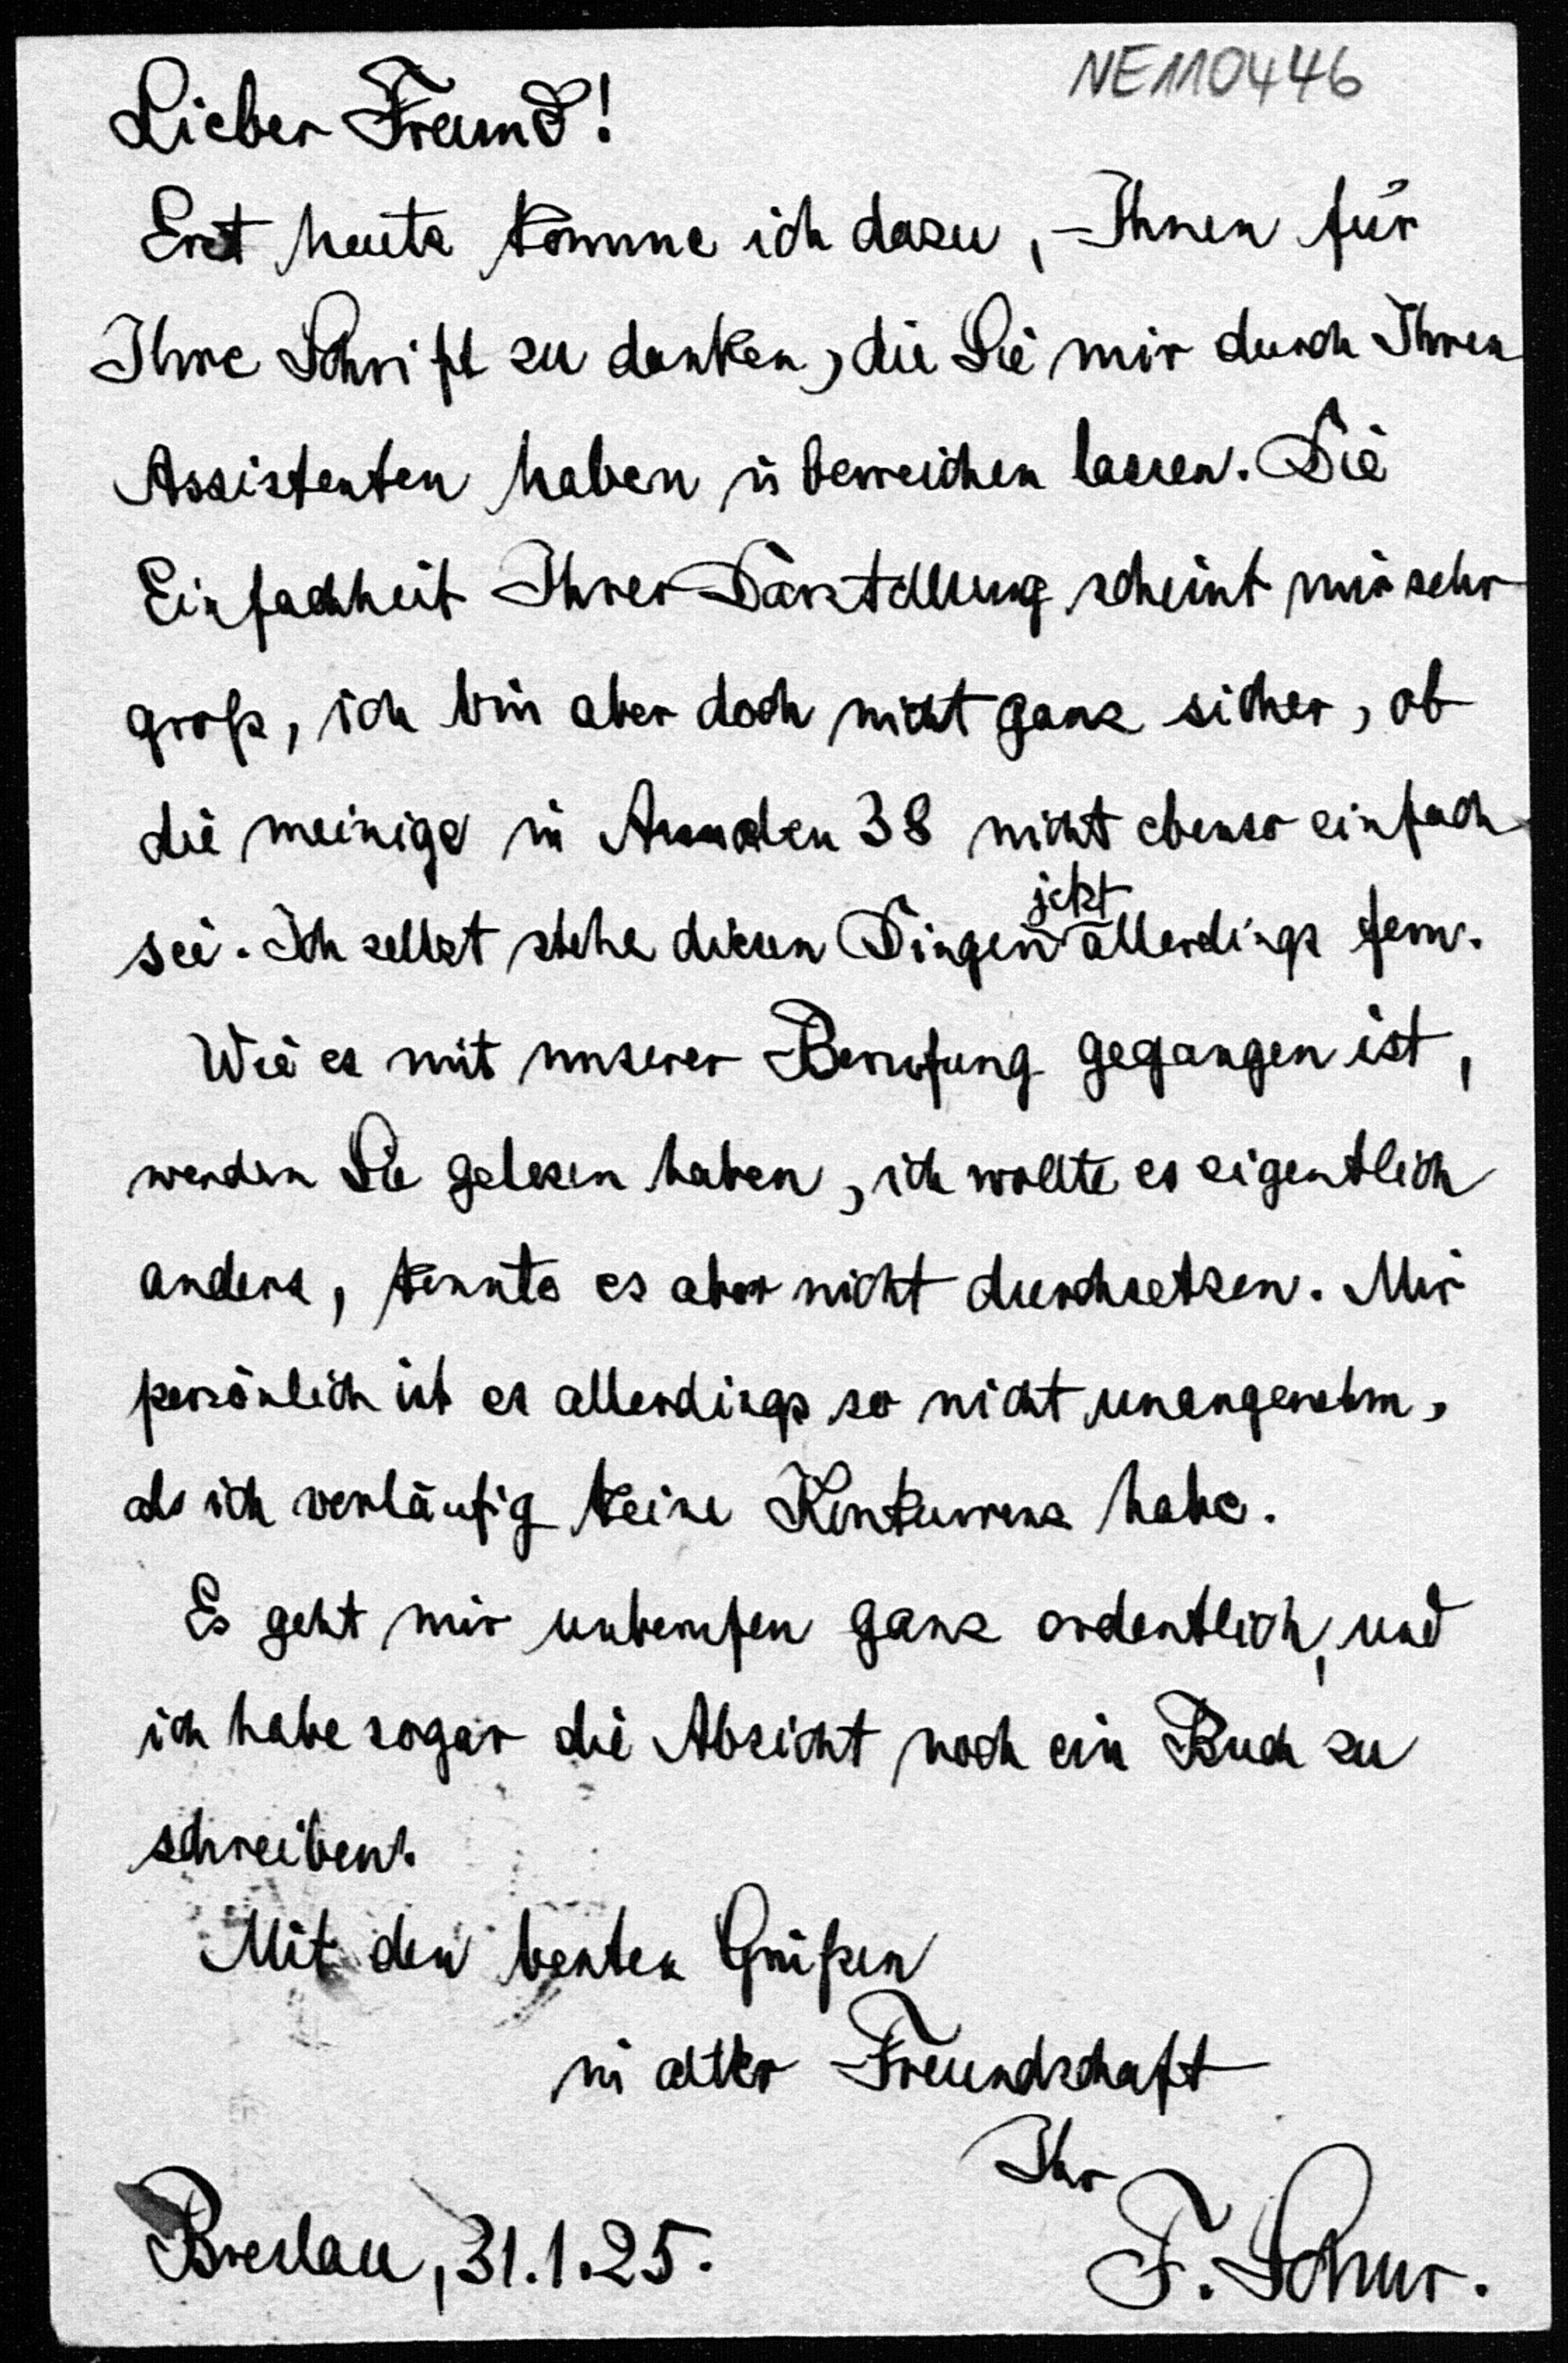 NE110446
Lieber Freund!
Erst heute komme ich dazu, Ihnen für
Ihre Schrift zu danken, die Sie mir durch Ihren
Assistenten haben überreichen lassen. Die
Einfachheit Ihrer Darstellung scheint mir sehr
groß, ich bin aber doch nicht ganz sicher, ob
die meinige in Annalen 38 nicht ebenso einfach
jetzt
sei. Ich selbst stehe diesen Dingen allerdings fern.
Wie es mit unserer Berufung gegangen ist,
werden Sie gelesen haben, ich wollte es eigentlich
anders, konnte es aber nicht durchsetzen. Mir
persönlich ist es allerdings so nicht unangenehm,
als ich vorläufig keine Konkurrenz habe.
Es geht mir unberufen ganz ordentlich, und
ich habe sogar die Absicht noch ein Buch zu
schreiben.
Mit den besten Grüßen
in alter Freundschaft
Ihr
Breslau, 31.1.25.
F. Schur.